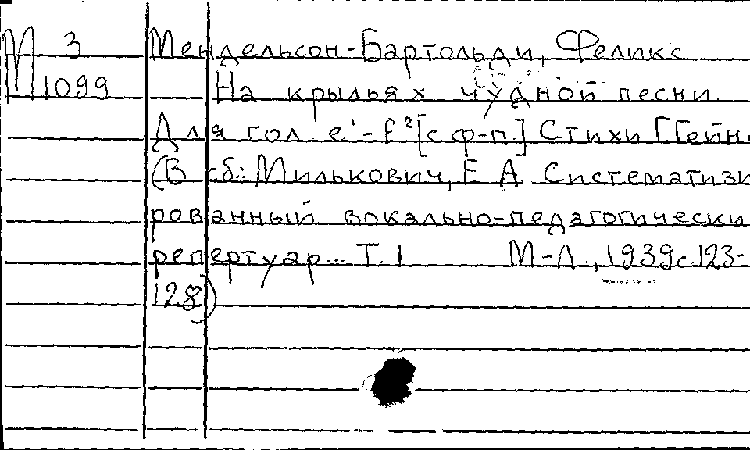 М 3 Мендельсон-Бартольди, Феликс
1099 На крыльях чудной песни.
Для гол. e¹-f²[с ф-п.] Стихи Г.Гейне
(В сб: Милькович, Е А Системати
рованный вокально-педагогически
репертуар... Т. 1 М-Л., 1939 с.123-
128)